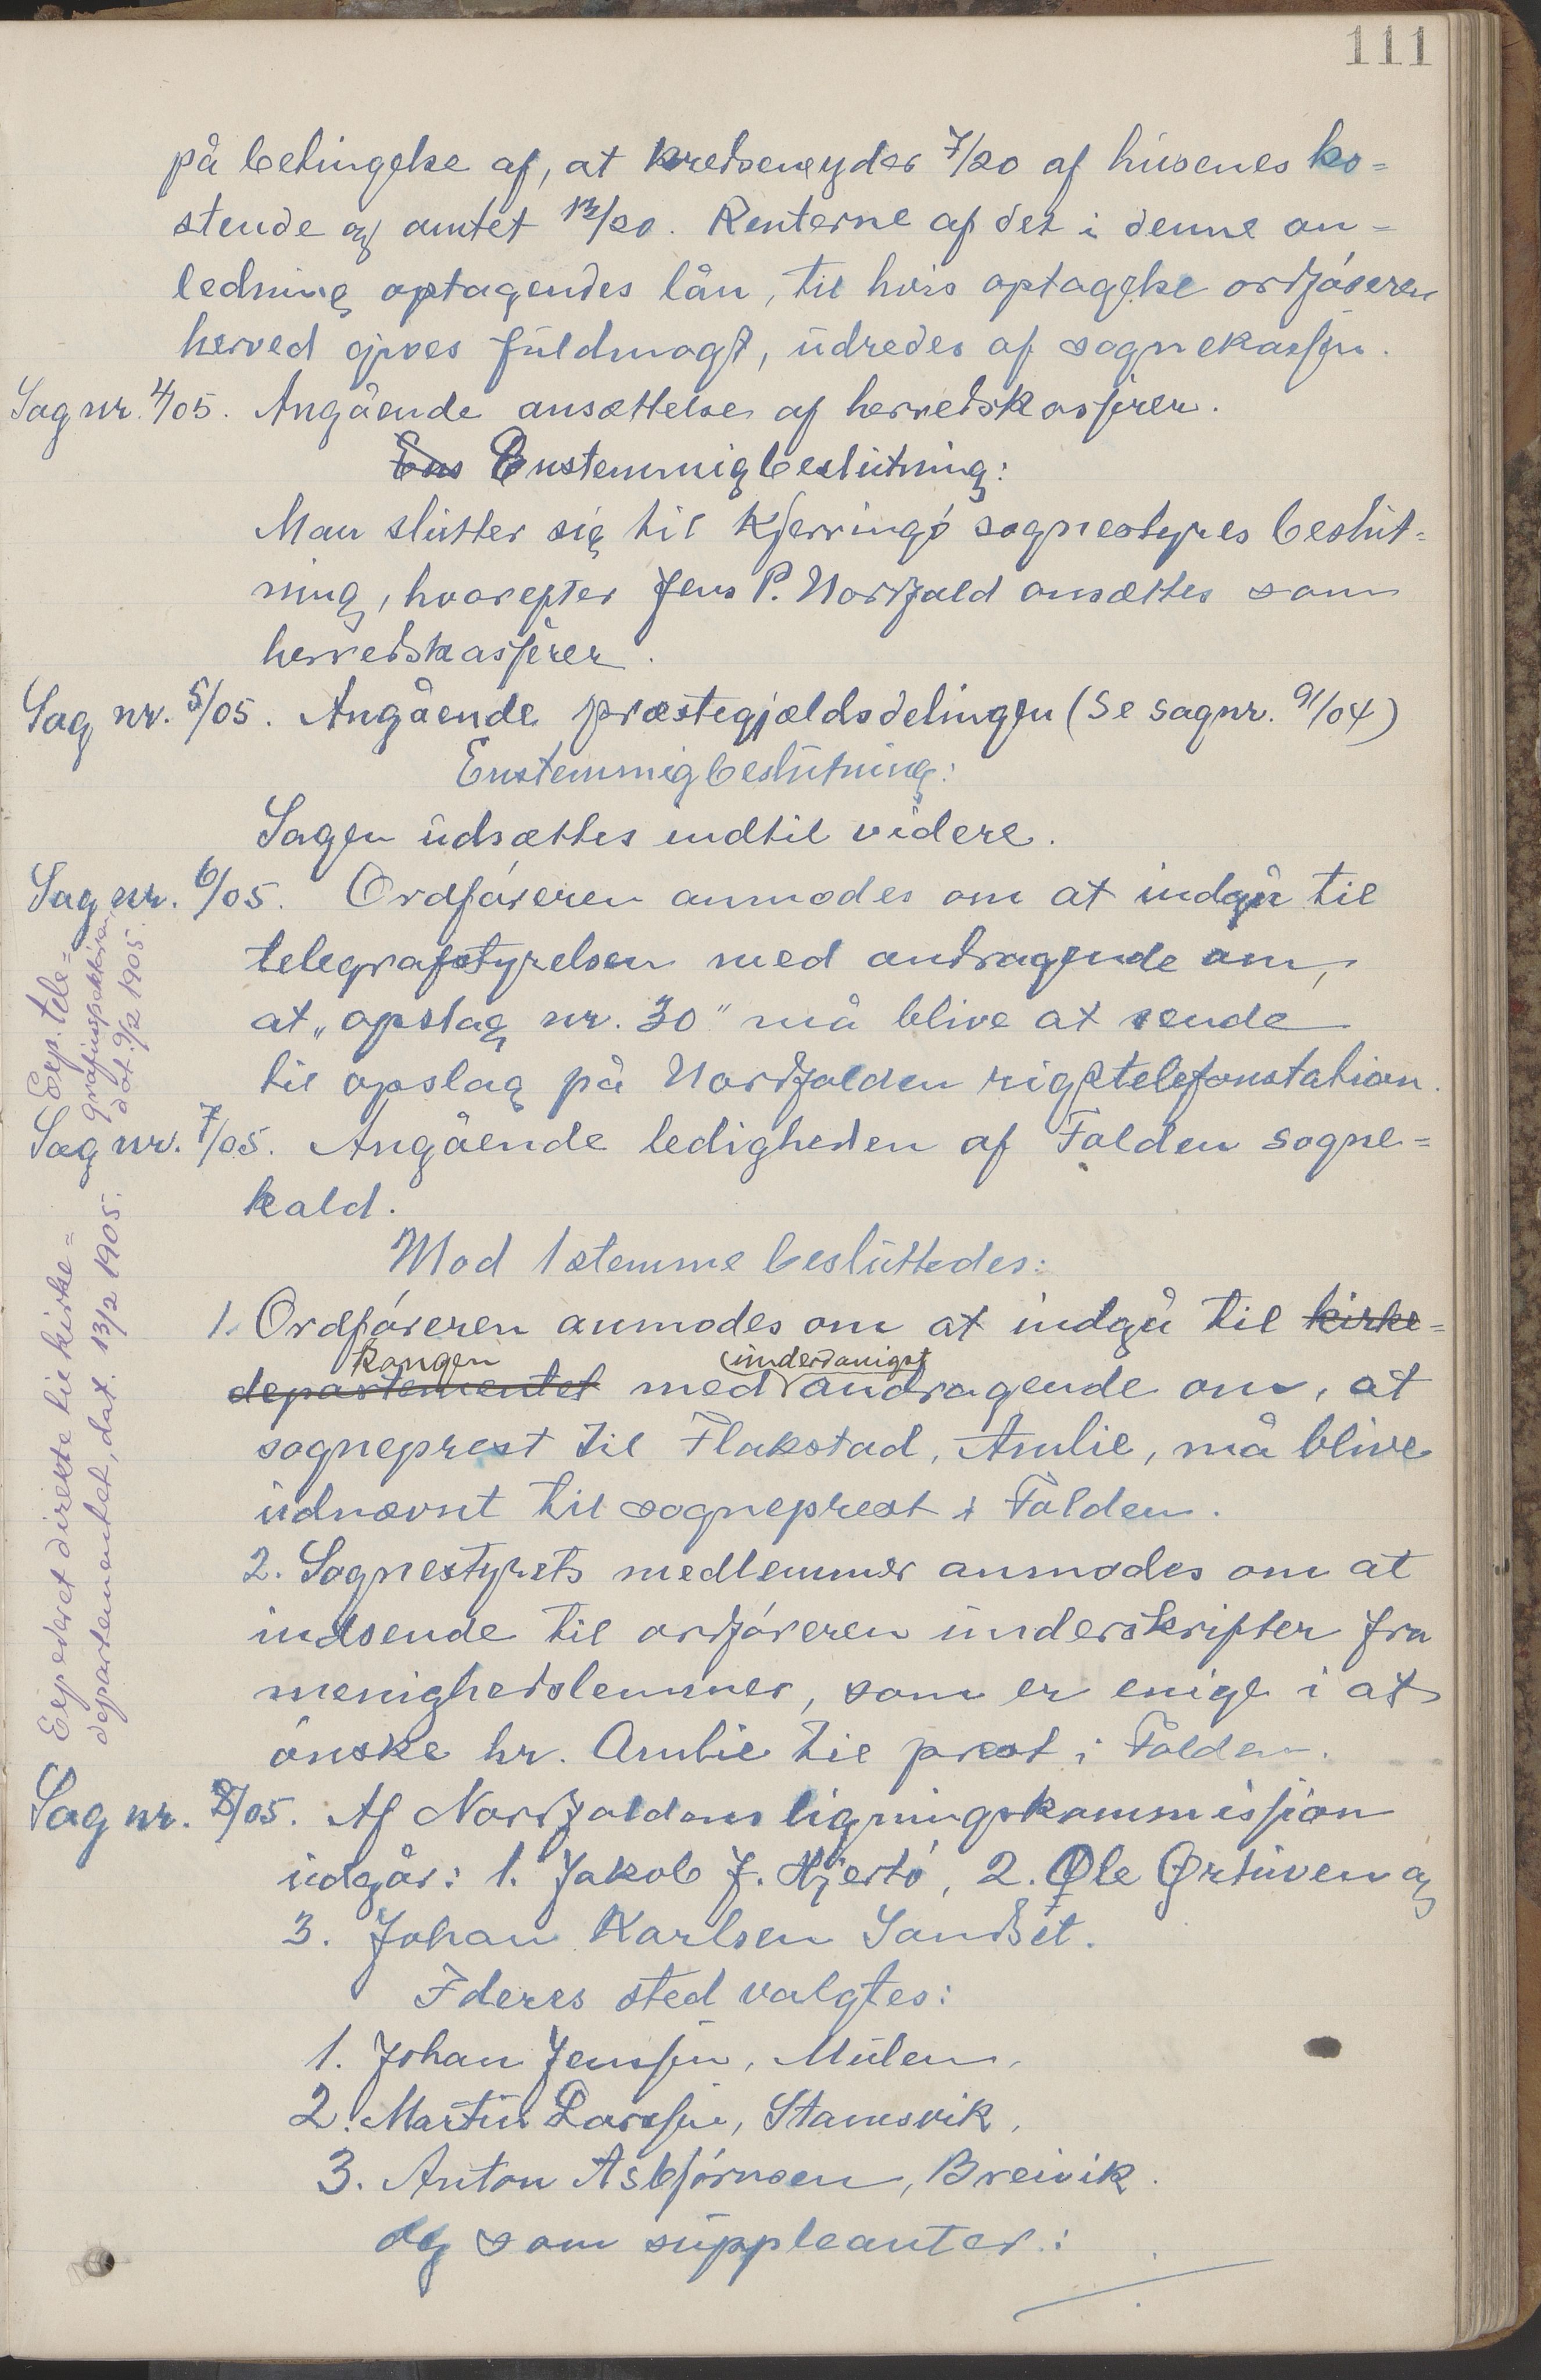 111
på betingelse af, at kredsene yder 7/20 af husenes ko=
stende og amtet 13/20. Renterne af det i denne an=
ledning optagendes lån, til hvis optagelse ordføreren
herved gives fuldmagt, udredes af sognekassen.
Sag nr. 4/05. Angående ansættelse af herredskasserer.
Ens Enstemmig beslutning:
Man slutter sig til Kjerringø sognestyres beslut=
ning, hvorefter Jens P. Nordfjald ansættes som
herredskasserer.
Sag nr. 5/05. Angående præstegjældsdelingen (Se sagnr. 91/04)
Enstemmig beslutning:
Sagen udsættes indtil videre.
Sag nr. 6/05. Ordføreren anmodes om at indgå til
telegrafstyrelsen med andragende om,
at „opslag nr. 30" må blive at sende
til opslag på Nordfolden rigstelefonstation.
Exp. tele=
grafinspektøren,
dat. 9/2 1905.
Sag nr. 7/05. Angående ledigheden af Folden sogne=
kald.
Mod 1 stemme besluttedes:
1. Ordføreren anmodes om at indgå til kirke=
kongen underdanigst
departementet med andragende om, at
sogneprest til Flakstad, Amlie, må blive
udnævnt til sogneprest i Folden.
2. Sognestyrets medlemmer anmodes om at
indsende til ordføreren underskrifter fra
menighedslemmer, som er enige i at
ønske hr. Amlie til prest i Folden.
Expederet direkte til kirke=
departementet, dat. 13/2 1905.
Sag nr. 8/05. Af Nordfoldens ligningskommission
udgår: 1. Jakob J. Hjertø, 2. Ole Ørtuven og
3. Johan Karlsen Sandset.
I deres sted valgtes:
1. Johan Jensen, Mulen,
2. Martin Larsen, Stamsvik,
3. Anton Asbjørnsen, Breivik.
Og som suppleanter: